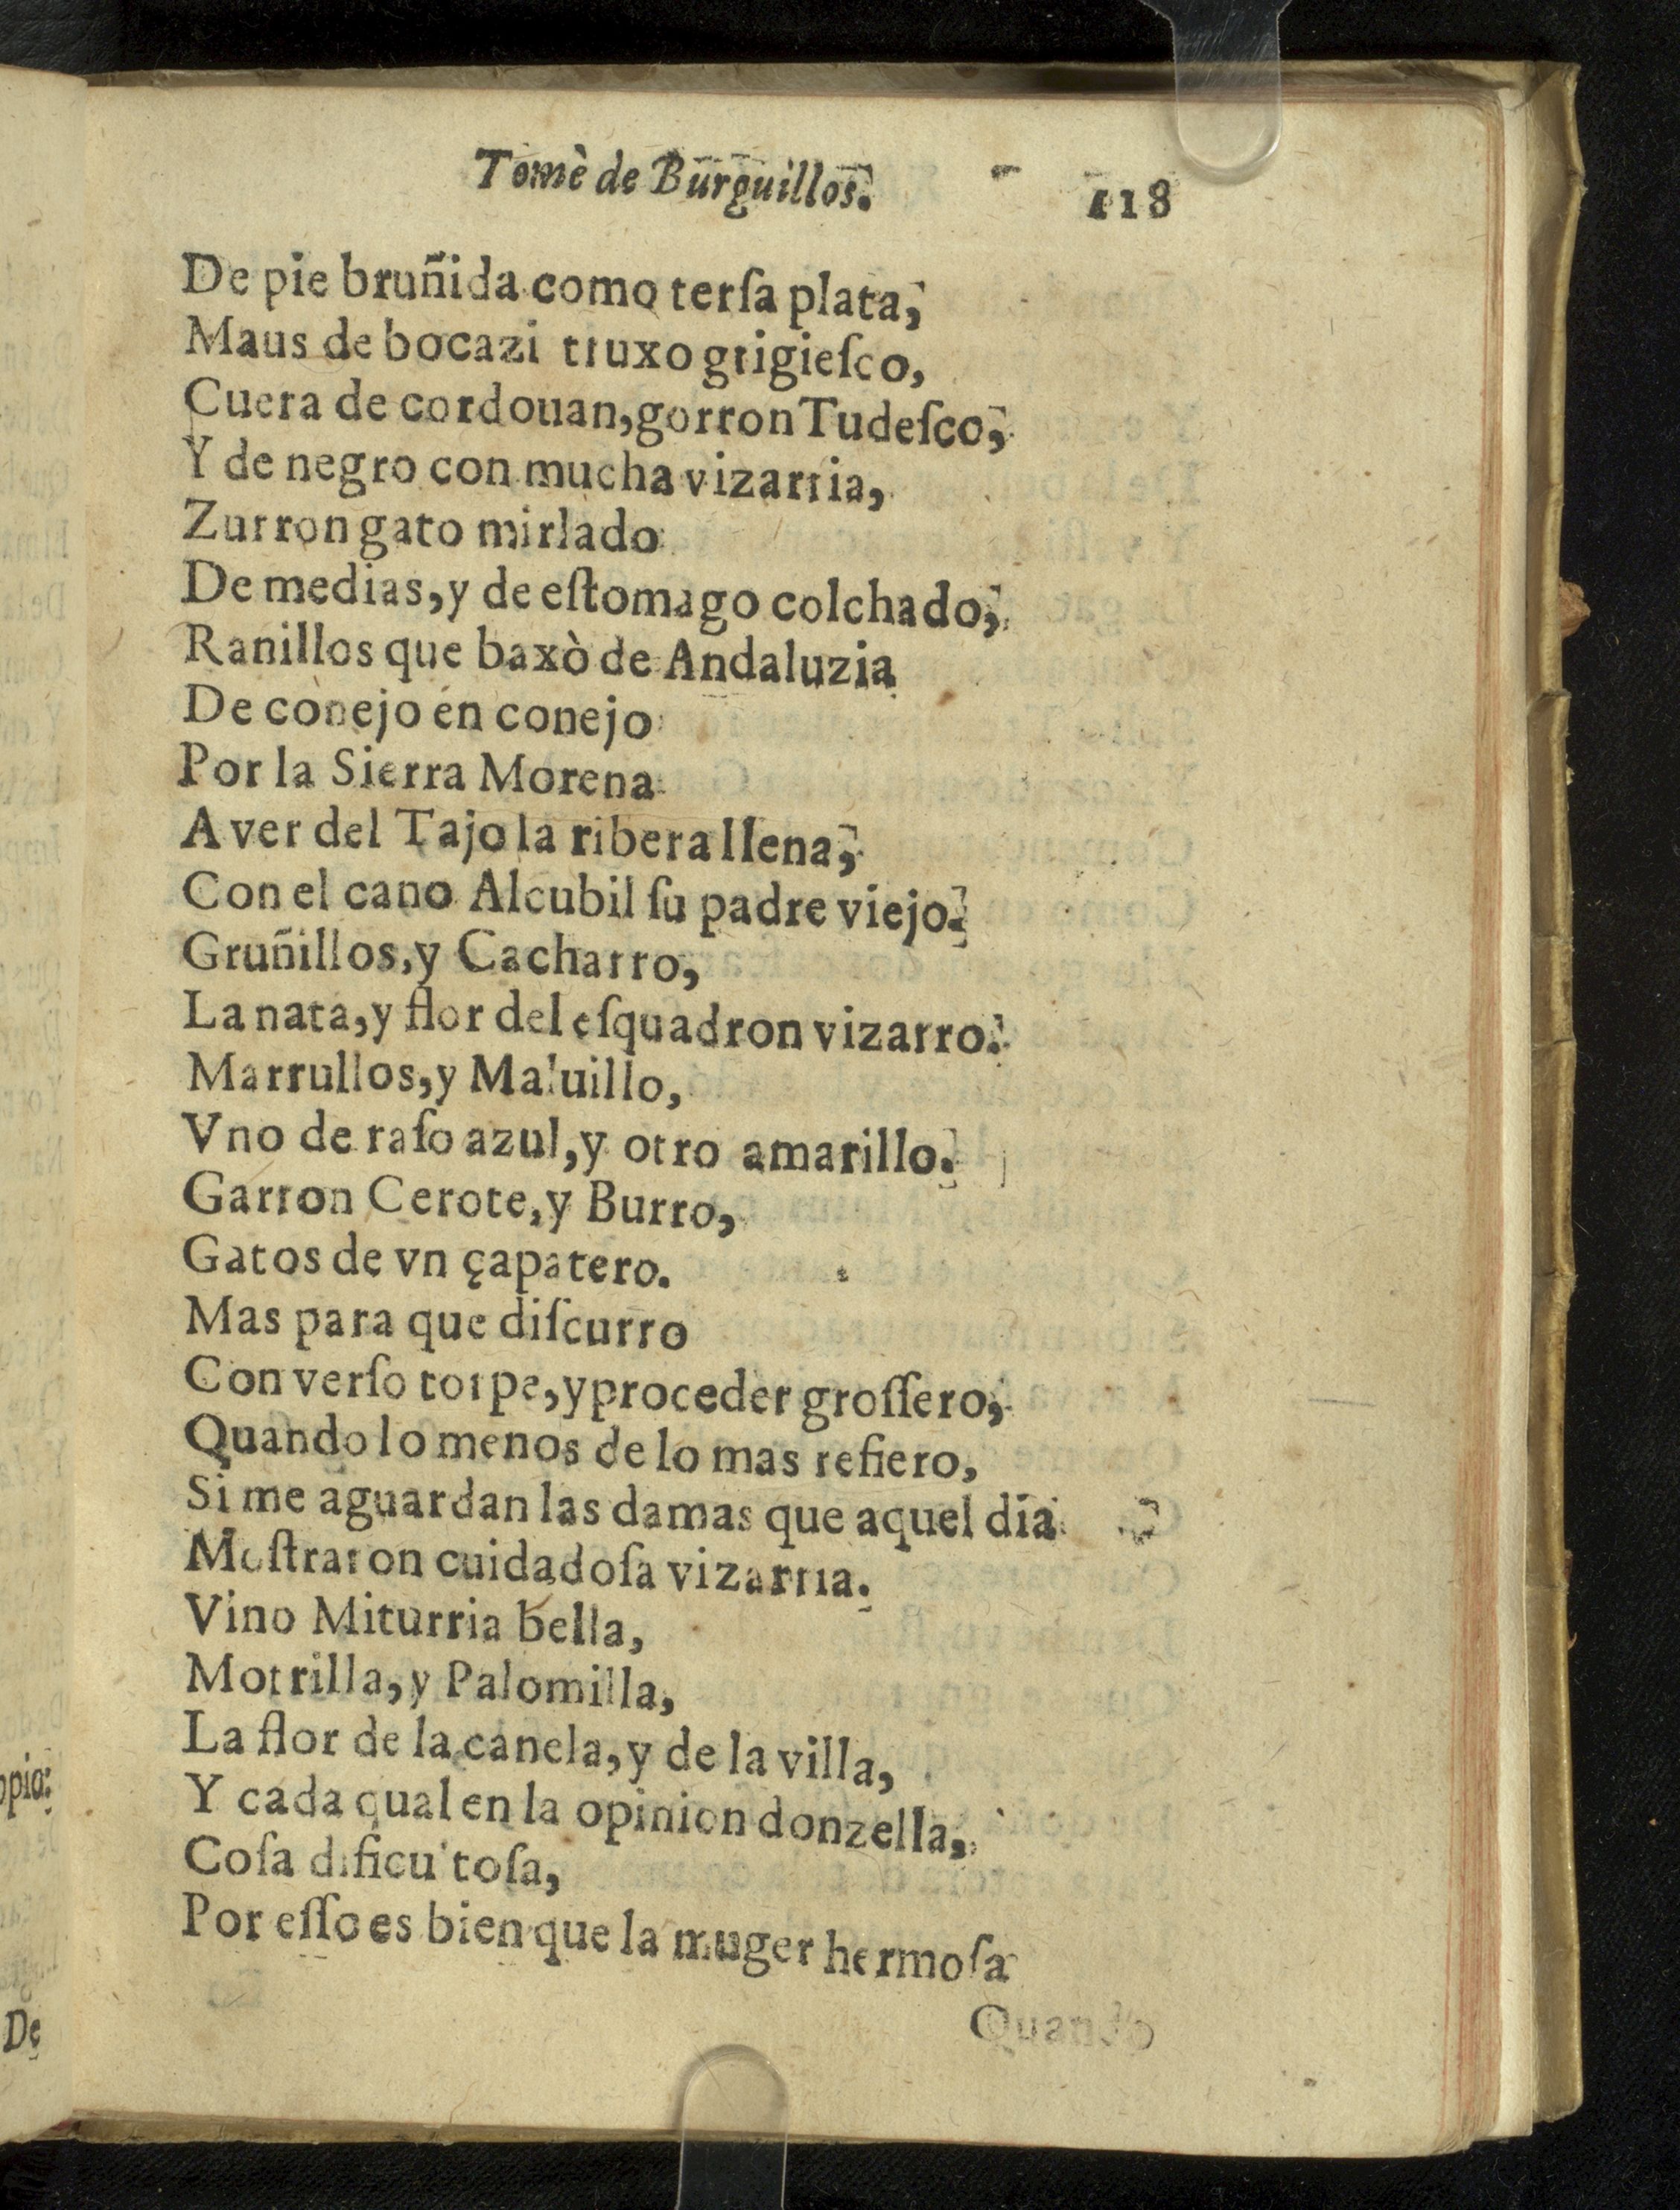 Tomè de Burguillos.
118
De pie bruñida como terſa plata,
Maus de bocazi truxo grigieſco,
Cuera de cordouan, gorron Tudeſco,
Y de negro con mucha vizarria,
Zurron gato mirlado
De medias, y de eſtomago colchado,
Ranillos que baxò de Andaluzia
De conejo en conejo
Por la Sierra Morena
A ver del Tajo la ribera llena,
Con el cano Alcubil ſu padre viejo.
Gruñillos, y Cacharro,
La nata, y flor del eſquadron vizarro.
Marrullos, y Maluillo,
Vno de raſo azul, y otro amarillo.
Garron Cerote, y Burro,
Gatos de vn çapatero.
Mas para que diſcurro
Con verſo torpe, y proceder groſſero,
Quando lo menos de lo mas refiero,
Si me aguardan las damas que aquel dia
Moſtraron cuidadoſa vizarria.
Vino Miturria bella,
Motrilla, y Palomilla,
La flor de la canela, y de la villa,
Y cada qual en la opinion donzella,
Coſa dificultoſa,
Por eſſo es bien que la muger hermoſa
Quando
opio:
De